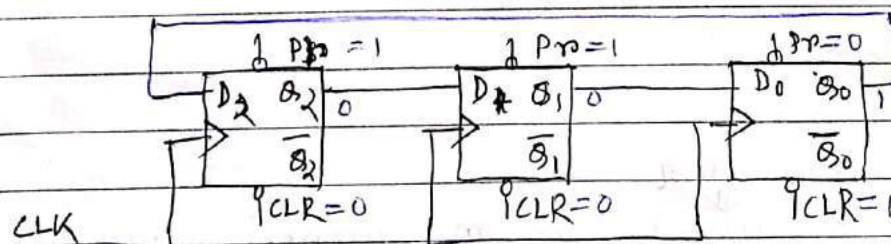 Pr = 1 Pr = 1 Pr = 0
D2 Q2 D1 Q1 D0 Q0
0 0 1
Q̅2 Q̅1 Q̅0
CLR = 0 CLR = 0 CLR = 1
CLK